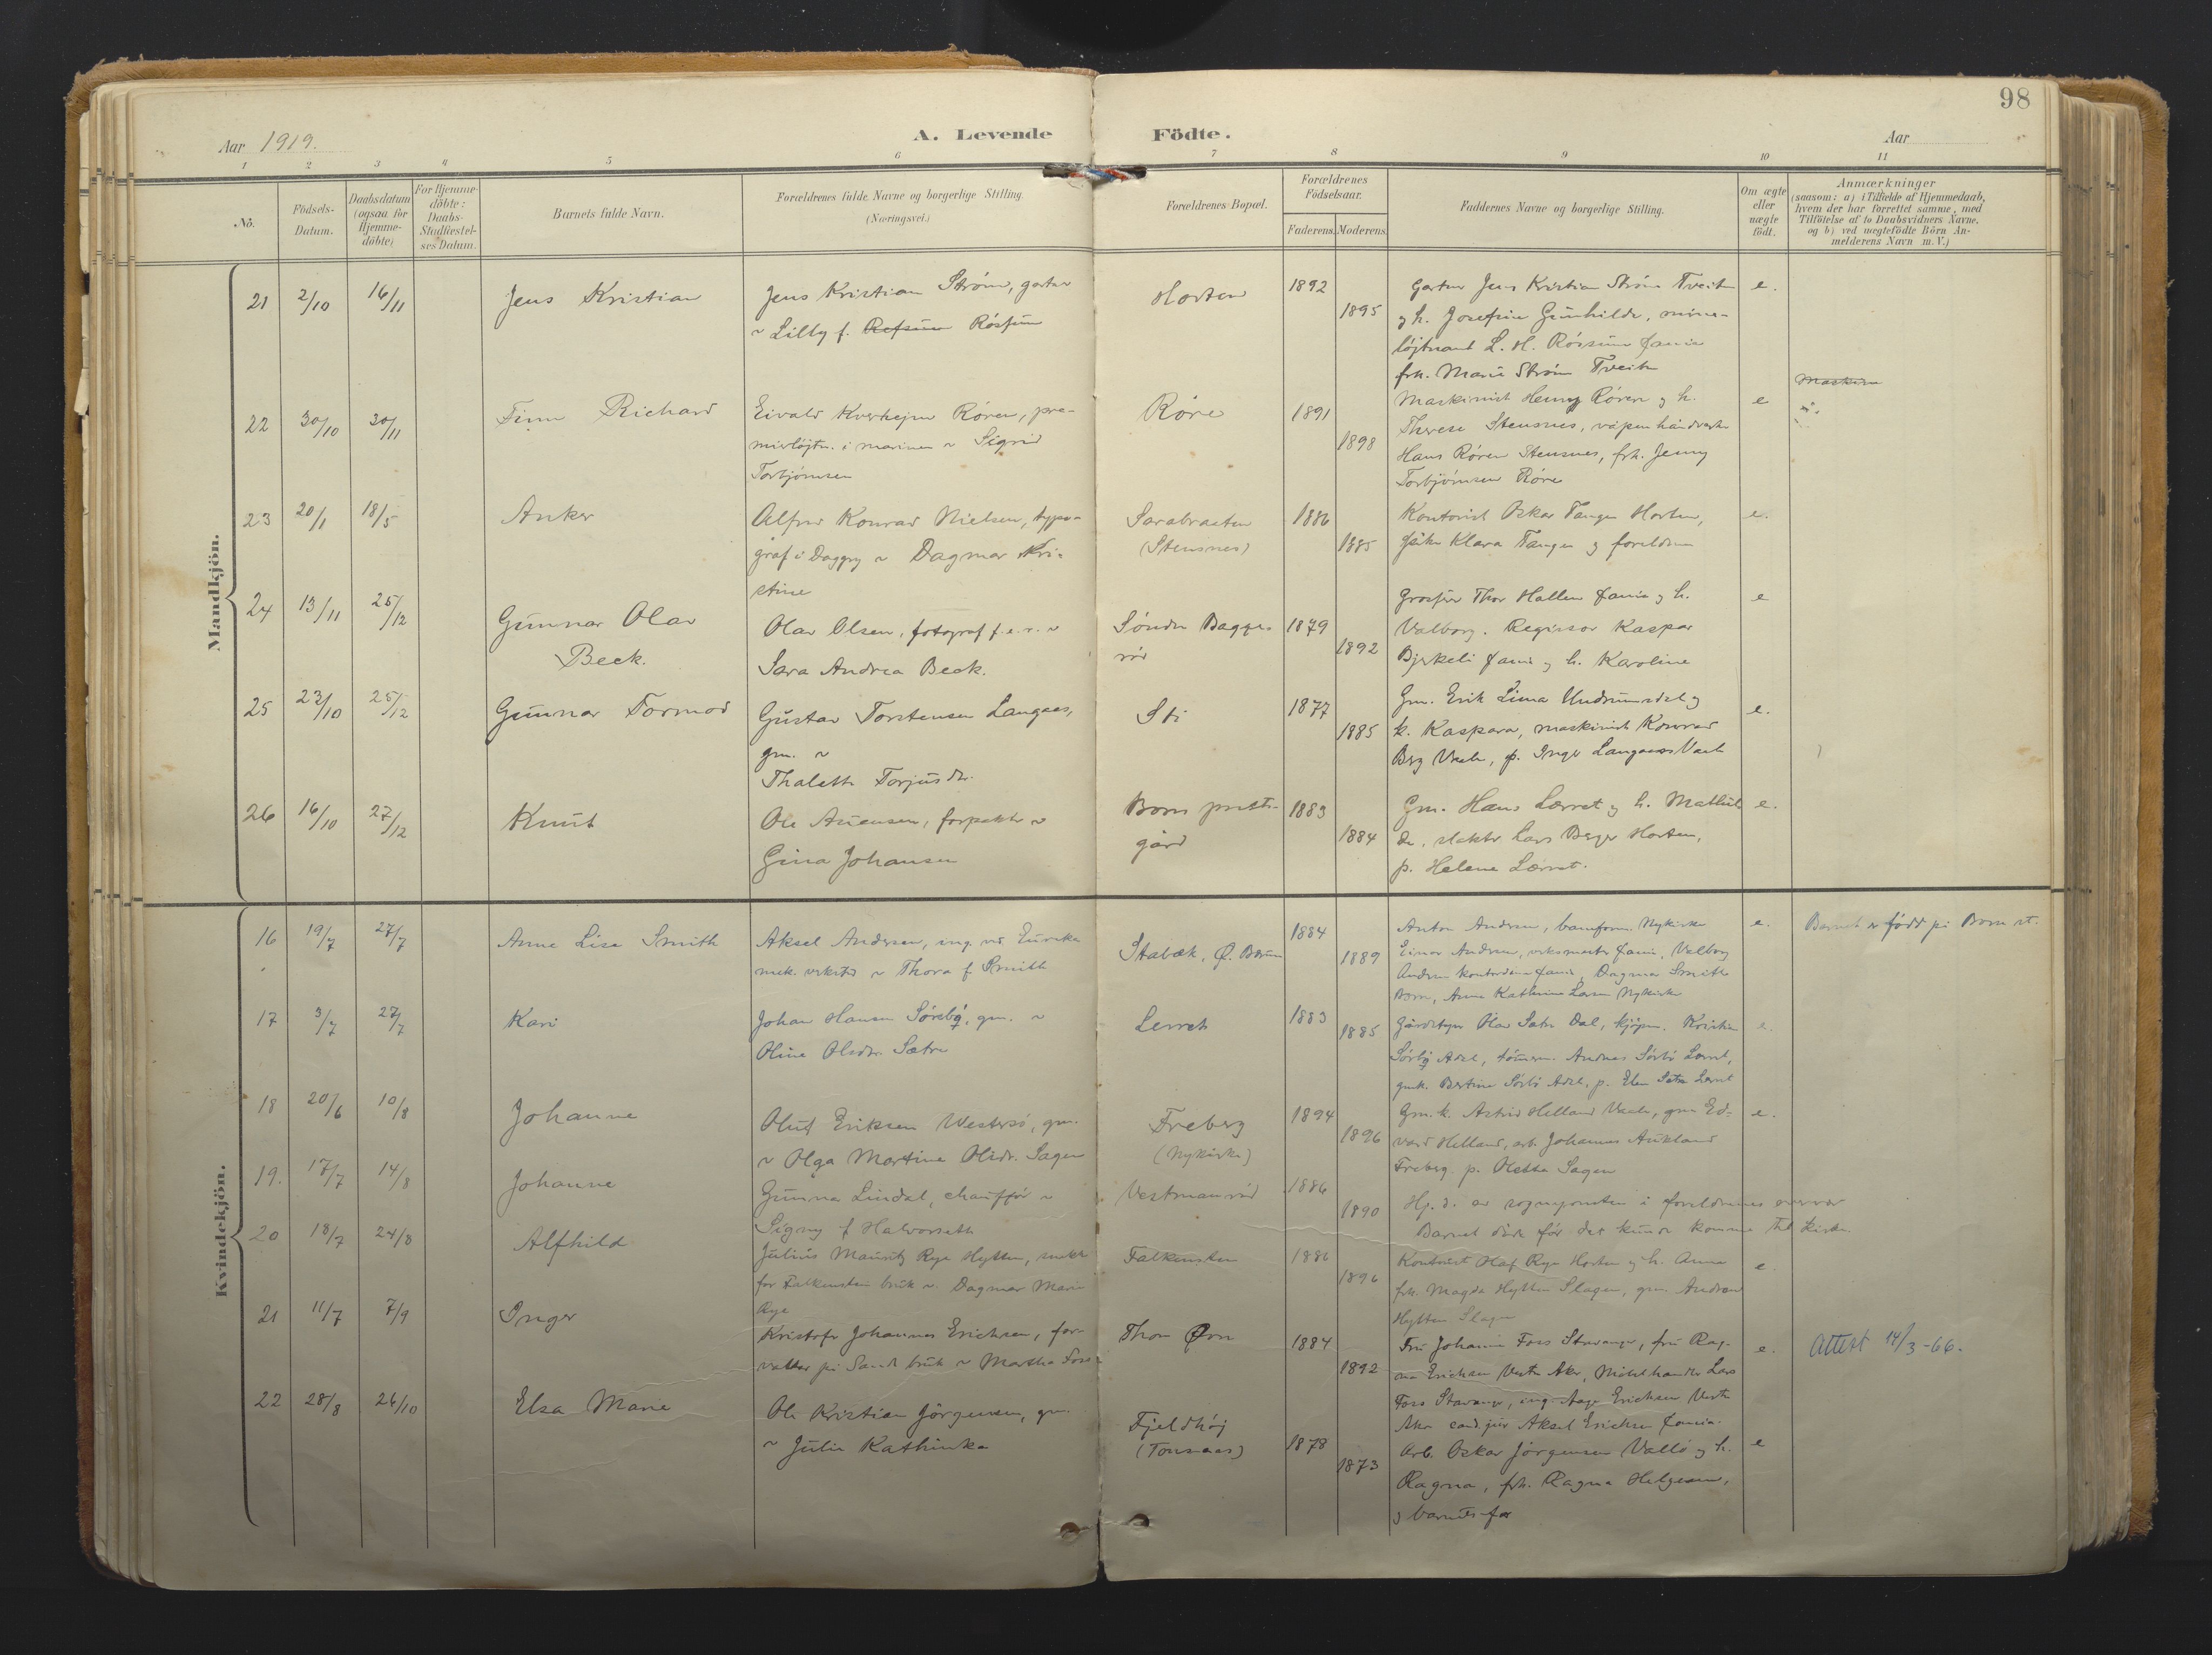 98
Aar 1919.
A. Levende Födte.
Aar
1 2 3 4 5 6 7 8 9 10 11
No.
Födsels-Datum.
Daabsdatum (ogsaa for Hjemme-döbte)
For Hjemme-döbte: Daabs-Stadfæstel-ses Datum.
Barnets fulde Navn.
Forældrenes fulde Navne og borgerlige Stilling.
(Næringsvei.)
Forældrenes Bopæl.
Forældrenes Födselsaar.
Faderens. Moderens.
Faddernes Navne og borgerlige Stilling.
Om ægte eller uægte födt.
Anmærkninger
(saasom: a) i Tilfælde af Hjemmedaab,
hvem der har forrettet samme, med
Tilföielse af to Daabsvidners Navne,
og b) ved uægtefödte Börn An-
melderens Navn m. V.)
Mandkjön.
21 2/10 16/11 Jens Kristian
Jens Kristian Strøm, gartner
~ Lilly f. Røssum
Horten 1892 1895
Gartner Jens Kristian Strøm Tveiten
og h. Josefine Gunhilde, mine-
løjtnant L. H.
frk. Marie Strøm Tveiten
e.
22 30/10 30/11 Finn Richard
Eivald Kverhejm Røren, pre-
mierløjtn. i marinen ~ Sigrid
Torbjörnsen
Røre 1891 1898
Maskinist Henry Røren og h.
Therese Stensnes, våpenhåndverker
Hans Røren Stensnes, frk. Jenny
Torbjörnsen Røre
e
23 20/1 18/5 Anker
Alfred Konrad Nielsen, typo-
graf i Daggry ~ Dagmar Kri-
stine
Sarabraaten
(Stensnes)
1886 1885
Kontorist Oskar Tangen Horten,
Klara Tangen og foreldrene
e.
24 13/11 25/12 Gunnar Olav
Beck.
Olav Olsen, fotograf f.e.r. ~
Sara Andrea Beck.
Søndre Bagge-
rød
1879 1892
Grosserer Thor Hallen Jania og h.
Valborg. Regissør Kaspar
Bjerkeli Jania og h. Karoline
e
25 23/10 25/12 Gunnar Tormod
Gustav Torstensen Langaas,
gm. ~
Thalette Torjusdr.
Sti 1877 1885
Gm. Erik Lima Undrumsdal og
k. Kaspara, maskinist Konrad
Berg Vaale, p. Inger Langaas Vaale
e.
26 16/10 27/12 Knut
Ole Asuensen, forpakter ~
Gina Johansen
Borre preste-
gård
1883 1884
Gm. Hans Lørret og h. Mathil-
de, slakter Lars Berger Horten,
p. Helene Lørret.
e.
Kvindekjön.
16 19/7 27/7 Anne Lise Smith
Aksel Andersen, ing. ved Eureka
mek. verksted ~ Thora f. Smith
Stabæk, Ø. Bærum
1884 1889
Anton Andersen, baneform. Nykirke
Einar Andersen, verksmester Jania, Valborg
Andersen kontordame Jania, Dagmar Smith
Borre, Anna Kathrine Larsen Nykirke
e.
Barnet er født på Borre st.
17 3/7 27/7 Kari
Johan Hansen Sørebø, gm. ~
Oline Olsdr. Sætre
Lerret 1883 1885
Gårdstyrer Olav Sætre Dal, kjøpm. Kristian
Sørbø Adal, tømrerm. Andreas Sörbö Lørret,
gmk. Bertine Sörbö Adal, p. Elen Sætre Lørret
e.
18 20/6 10/8 Johanne
Oluf Eriksen Westersö, gm.
~ Olga Martine Olsdr. Sagen
Freberg
(Nykirke)
1894 1896
Gm.k. Astrid Helland Vaale, gm. Ed-
vard Helland, arb. Johannes Aukland
Freberg. p. Oletta Sagen
e.
19. 17/7 14/8 Johanne
Gunnar Lindal, chauffør ~
Signy f. Halvorseth
Vestmanrød 1886 1890
Hj. d. av sognepresten i foreldrenes overvær
Barnet døde før det kunde komme til kirken
20 18/7 24/8 Alfhild
Julius Mauritz Rye Hytten,
for Falkensten bruk ~ Dagmar Marie
Rye
Falkensten 1886 1896
Kontorist Olaf Rye Horten og h. Anna
frk. Magda Hytten Slagen, gm. Andreas
Hytten Slagen
e.
21 11/7 7/9 Inger
Kristofer Johannes Erichsen, for-
valter på Sande bruk ~ Martha Foss
Thon Øvre 1884 1892
Fru Johanne Foss Stavanger, fru Rag-
na Erichsen Vestre Aker, Lars
Foss Stavanger, ing. Aage Erichsen Vestre
Aker cand. jur Aksel Erichsen Jania.
e.
Attest 14/3-66.
22 28/8 26/10 Elsa Marie
Ole Kristian Jörgensen, gm.
~ Julie Kathinka
Fjeldhöj
(Tonsaas)
1878 1873
Arb. Oskar Jörgensen Vallö og h.
Ragna, frk. Ragna Helgesen,
og barnets far
e